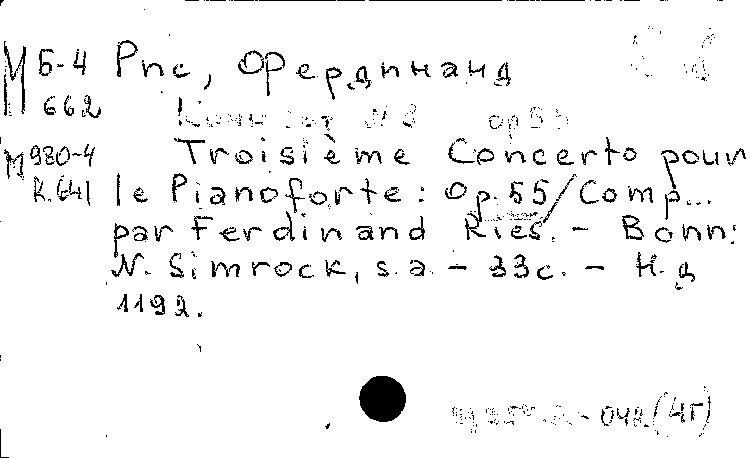 М Б-4 Рис, Фердинанд
662
Концерт № 3 ор 55
М 980-4 Troisième Concerto pour
К.641 le Pianoforte: Op. 55/Comp...
par Ferdinand Ries. - Bonn:
N. Simrock, s.a. - 33с. - Н.д
1192.
048.(4Г)